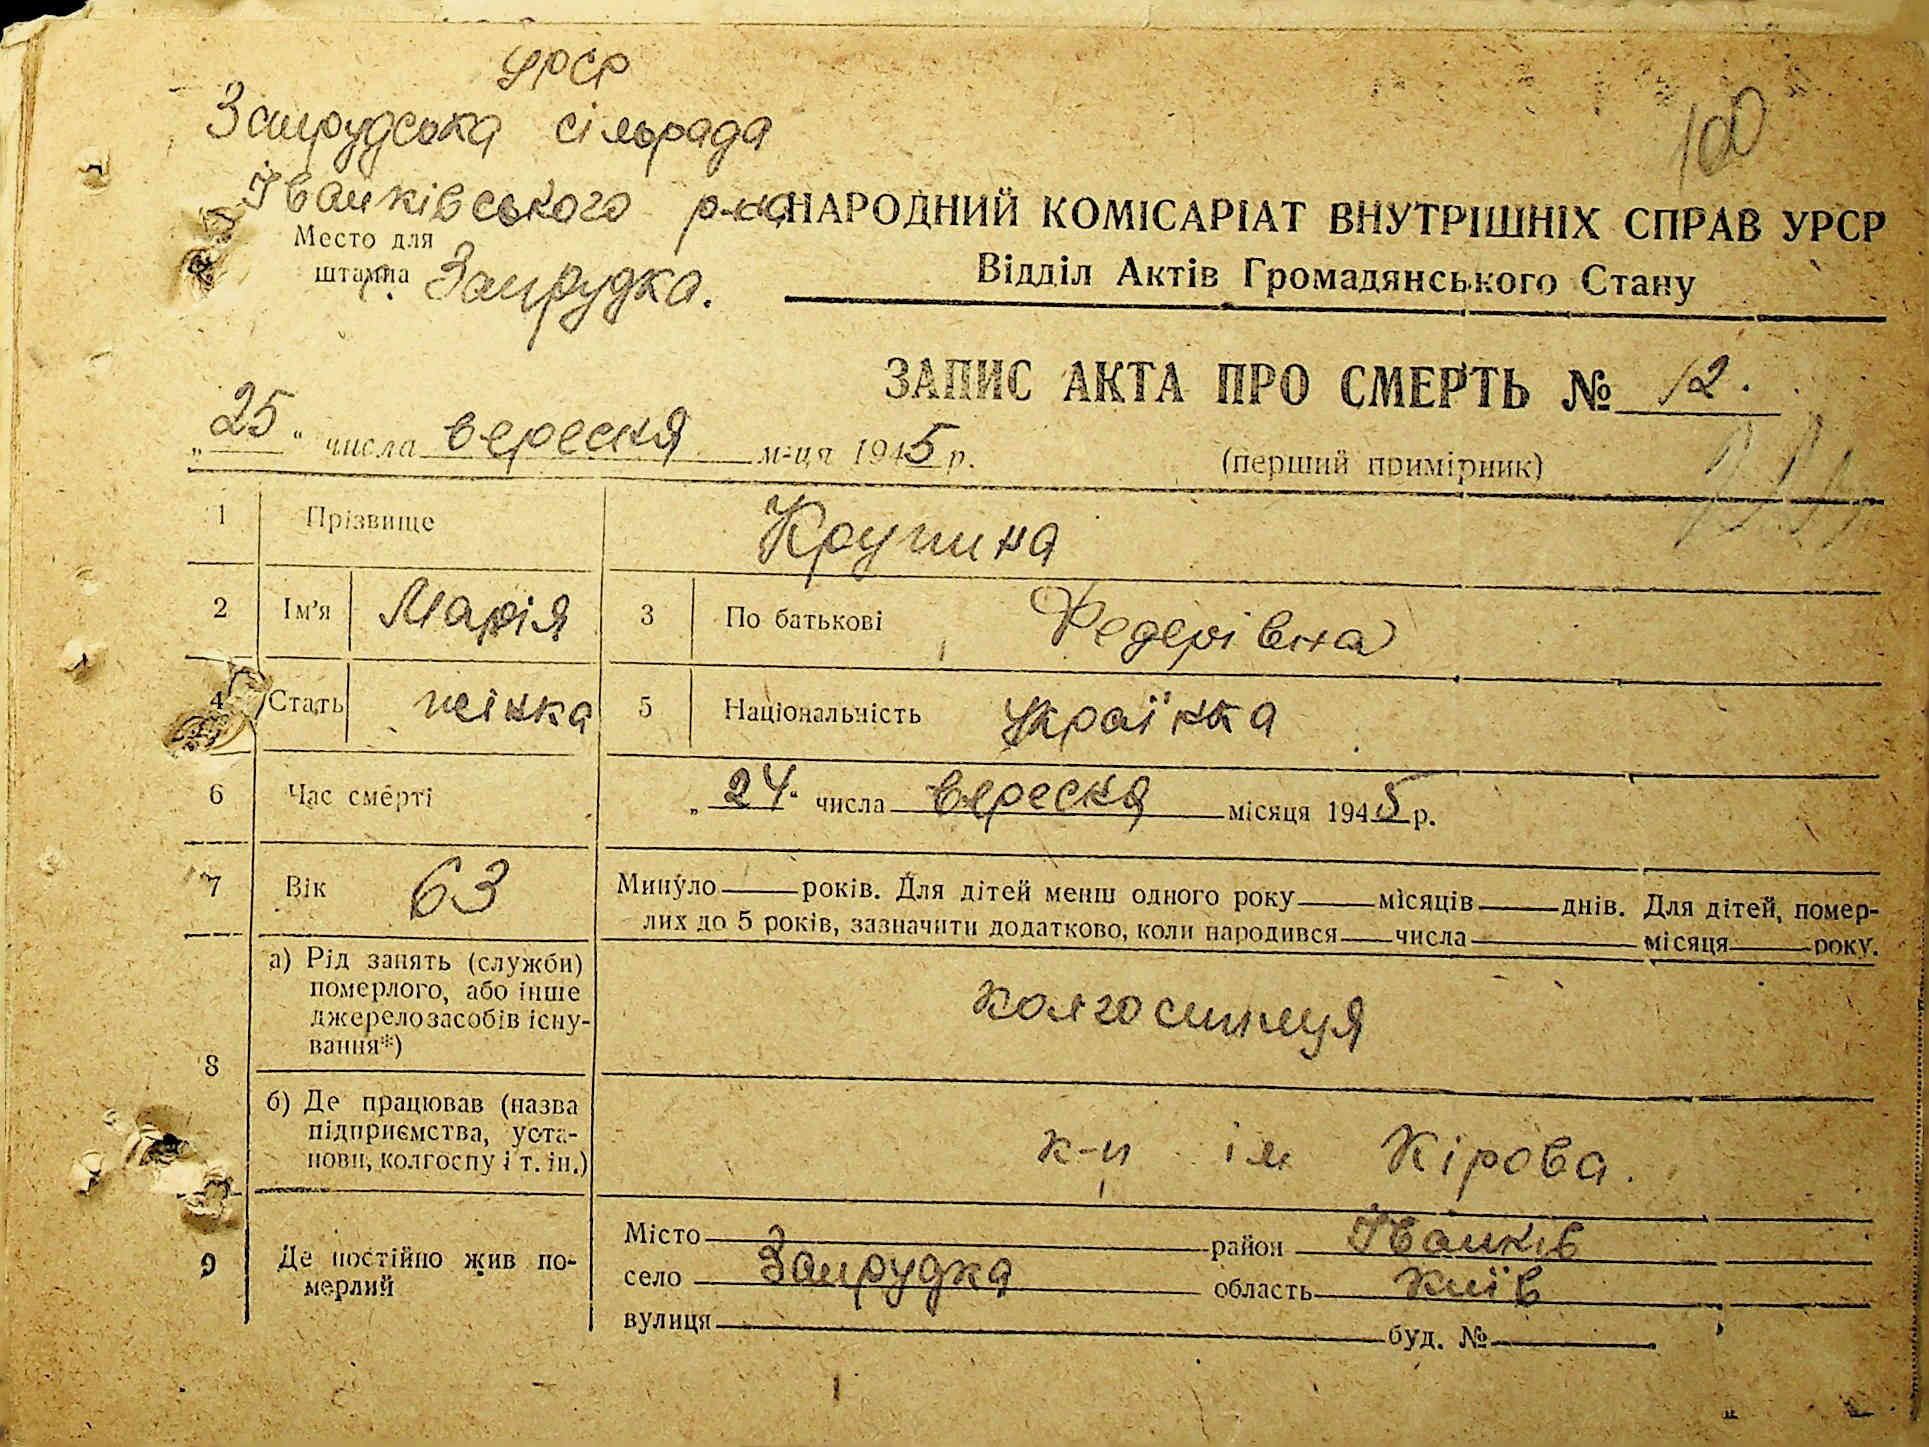 УРСР
Запрудська сільрада
Іванківського р-на
Место для
штампа
с. Запрудка.
100
НАРОДНИЙ КОМІСАРІАТ ВНУТРІШНІХ СПРАВ УРСР
Відділ Актів Громадянського Стану
ЗАПИС АКТА ПРО СМЕРТЬ № 12.
„25“ числа вересня м-ця 1945 р.
(перший примірник)
1 Прізвище Крупина
2 Ім’я Марія 3 По батькові Федерівна
4 Стать жінка 5 Національність українка
6 Час смерті „24“ числа вересня місяця 1945 р.
7 Вік 63 Минуло років. Для дітей менш одного року місяців днів. Для дітей, помер-
лих до 5 років, зазначити додатково, коли народився числа місяця року.
8 а) Рід занять (служби)
померлого, або інше
джерело засобів існу-
вання*)
колгоспниця
б) Де працював (назва
підприємства, уста-
нови, колгоспу і т. ін.)
к-п ім Кірова.
9 Де постійно жив по-
мерлий
Місто район Іванків
село Запрудка область Київ
вулиця буд. №